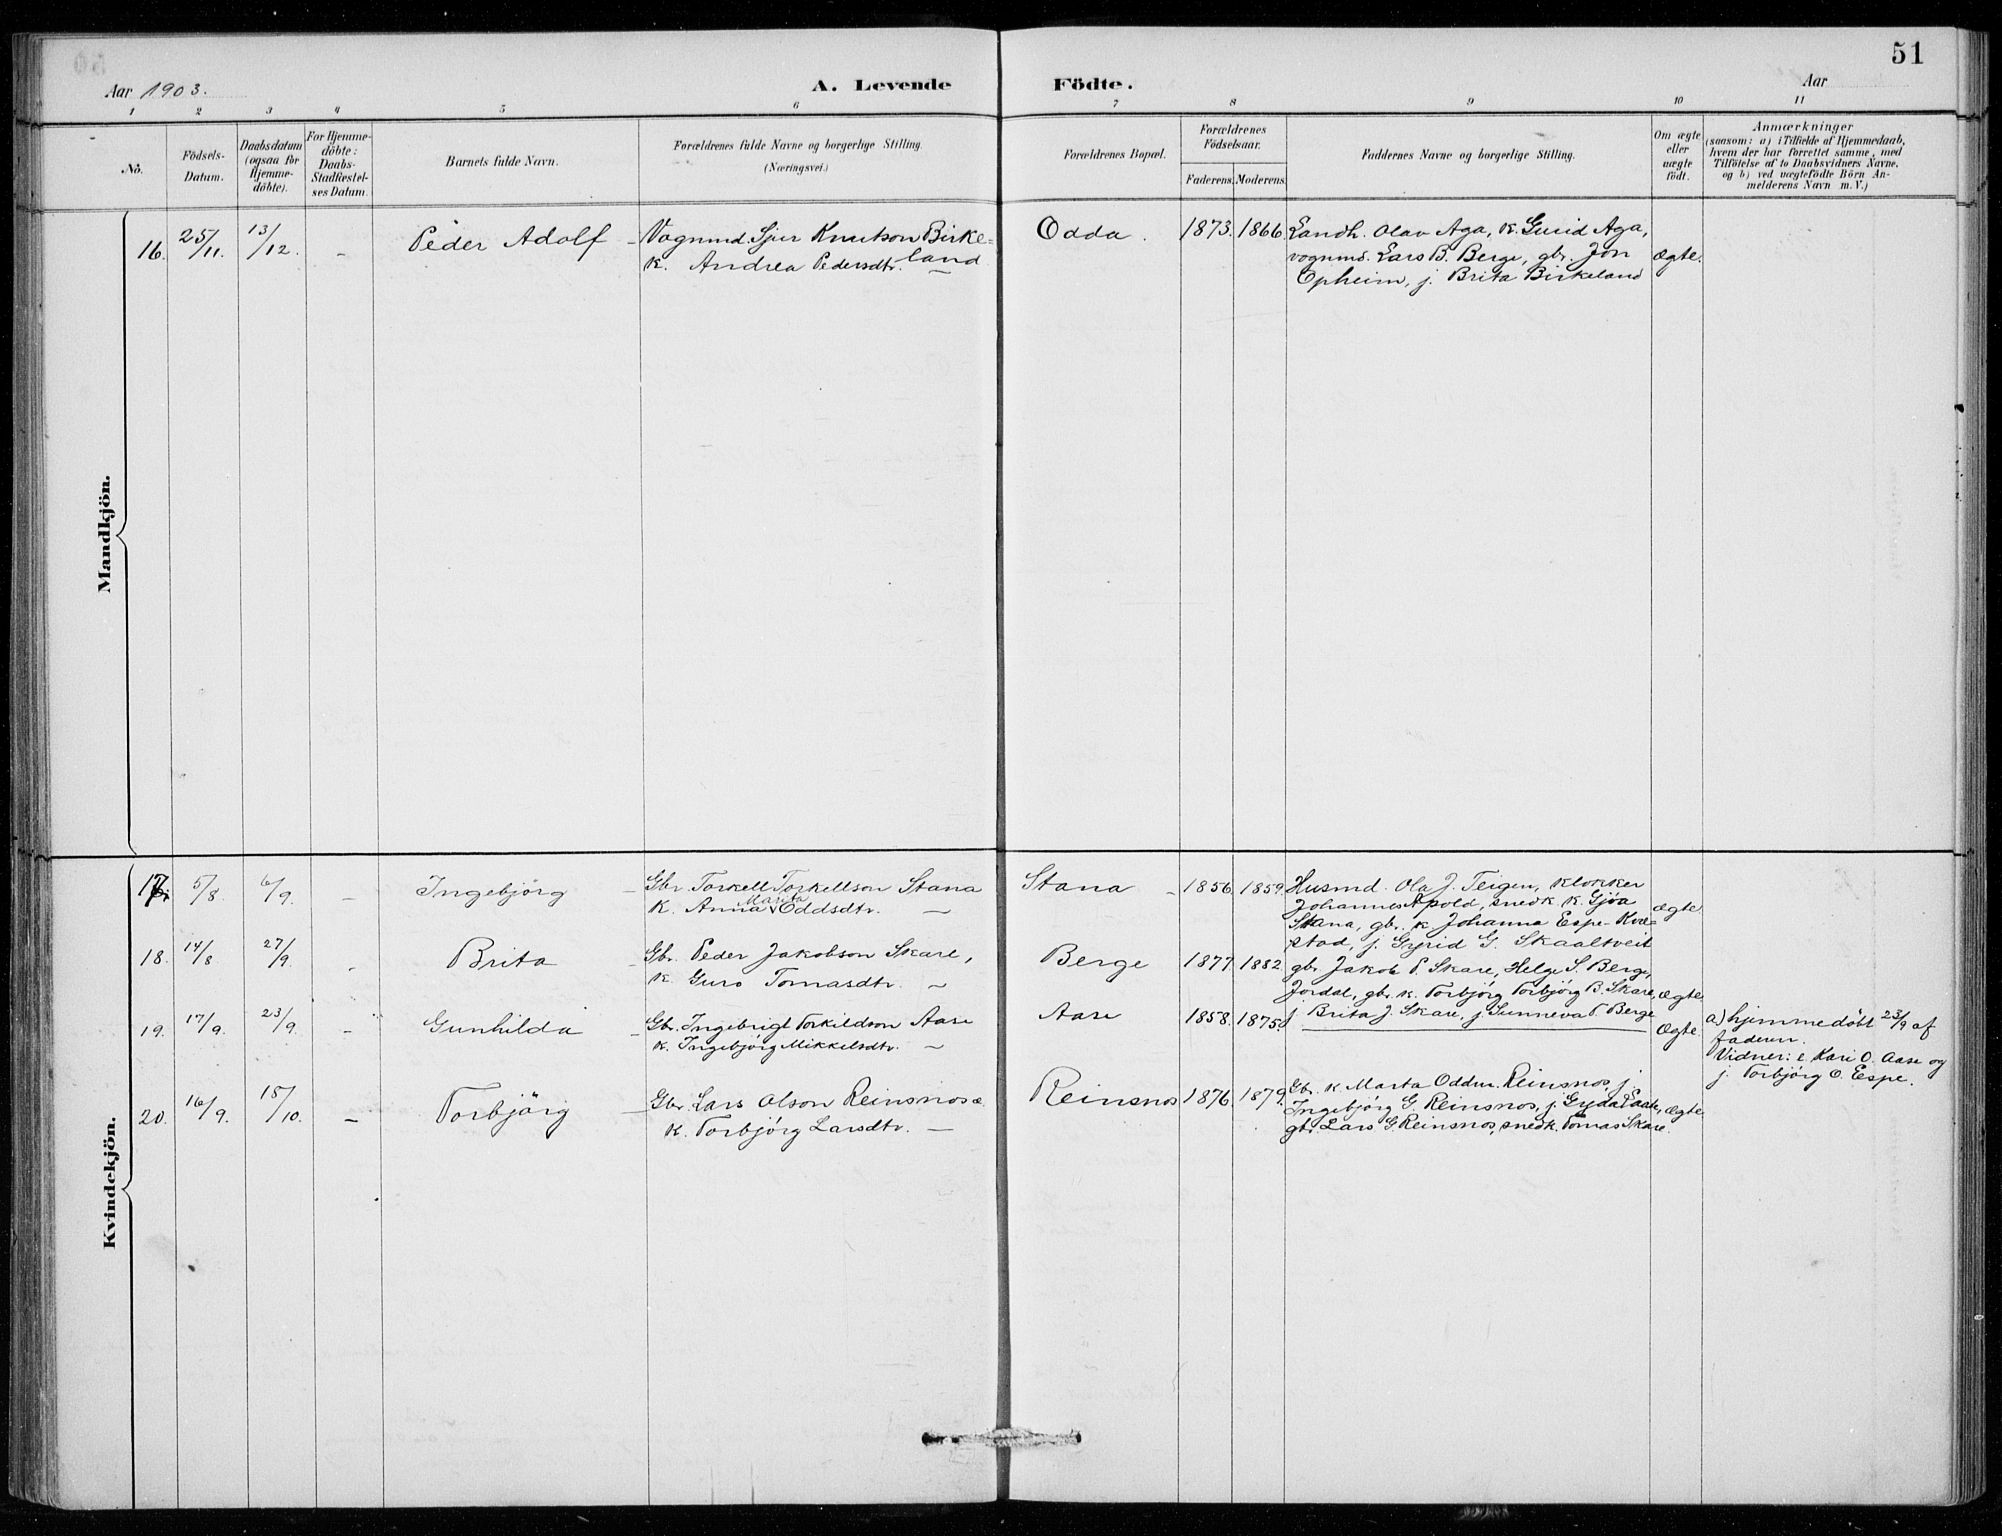 51
Aar 1903.
A. Levende Födte.
Aar
1 2 3 4 5 6 7 8 9 10 11
No.
Födsels-Datum.
Daabsdatum (ogsaa for Hjemme-döbte).
For Hjemme-döbte: Daabs-Stadfestel-ses Datum.
Barnets fulde Navn.
Forældrenes fulde Navne og borgerlige Stilling.
(Næringsvei.)
Forældrenes Bopæl.
Forældrenes Födselsaar.
Faderens. Moderens.
Faddernes Navne og borgerlige Stilling.
Om ægte eller uægte födt.
Anmærkninger
(saasom: a) i Tilfælde af Hjemmedaab,
hvem der har forrettet samme, med
Tilföielse af to Daabsvidners Navne,
og b) ved uægtefödte Börn An-
melderens Navn m. V.)
Mandkjön.
16. 25/11. 13/12. - Peder Adolf - Vognmd. Sjur Knutson Birke=
land
k. Andrea Pedersdtr. —
Odda. 1873. 1866. Landh. Olav Aga, k. Gurid Aga,
vognmd. Lars B. Berge, gbr. Jon
Opheim, j. Brita Birkeland
Ægte.
Kvindekjön.
17. 5/8. 6/9. - Ingebjörg - Gbr. Torkell Torkellson Stana
Marita
k. Anna Oddsdtr. —
Stana - 1856. 1859. Husmd. Ola J. Teigen, klokker
Johannes Apold, snedk. k. Gjöa
Stana, gbr. k. Johanna Espe-Kve=
stad, j. Gyrid G. Skaaltveit
Ægte.
18. 14/8 27/9. - Brita - Gbr. Peder Jakobson Skare,
k. Guro Tomasdtr. —
Berge 1877. 1882. gbr. Jakob P. Skare, Helge S. Berge,
Jordal, gbr. k. Torbjörg Torbjörg B. Skare,
j. Brita J. Skare, j. Sunneva T. Berge
Ægte.
19. 17/9. 23/9. - Gunhilda - Gbr. Ingebrigt Torkildson Aase
k. Ingebjörg Mikkelsdtr. —
Aase 1858. 1875. Ægte.
a.) hjemmedöbt 23/9 af
faderen.
Vidner: e. Kari O. Aase og
j. Torbjörg O. Espe.
20. 16/9. 18/10. - Torbjörg - Gbr. Lars Olson Reinsnos
k. Torbjörg Larsdtr. —
Reinsnos 1876. 1879. Gb. k. Marta Oddm. Reinsnos, j.
Ingebjörg G. Reinsnos, j. Gyda
gbr. Lars G. Reinsnos, snedk. Tomas Skare.
Ægte